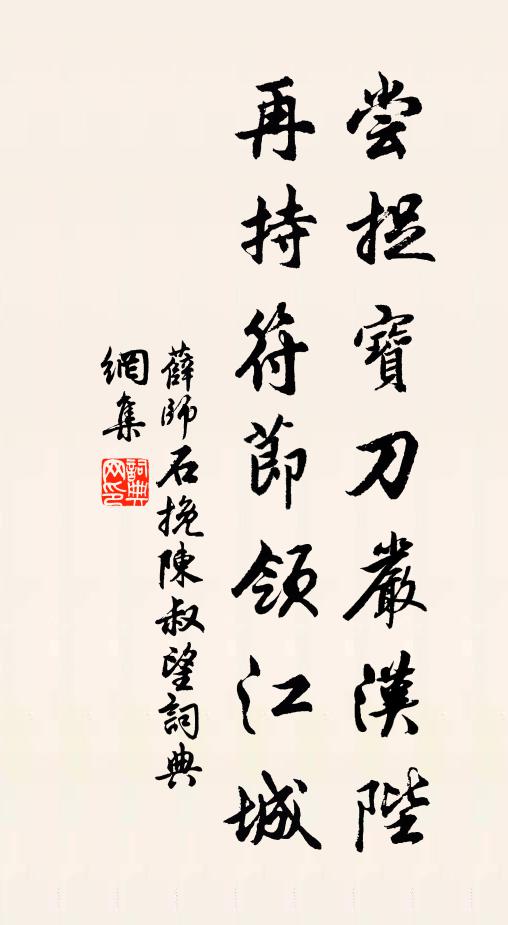 尝捉寶刀嚴漢陛
再持符節領江城
薛師石挽陳叔望詞典
網集
詞典網印